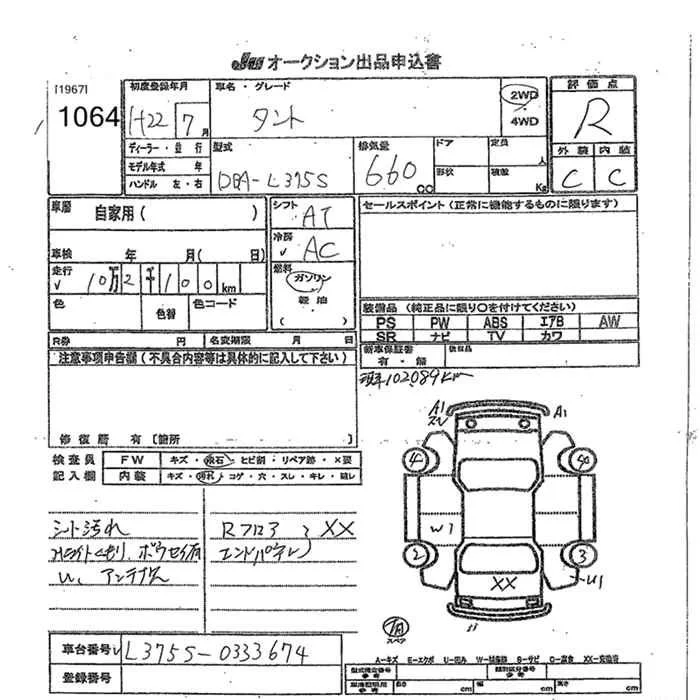 JU オークション出品申込書
[1967]
1064
初度登録年月
H22 7月
車名・グレード
タント
2WD
・
4WD
評価点
R
ディーラー・並行
モデル年式 年
ハンドル 左・右
型式
DBA-L375S
排気量
660 cc
ドア
形状
定員 人
積載 Kg
外装 内装
C C
車歴
自家用( )
シフト AT
冷房 AC
セールスポイント(正常に機能するものに限ります)
車検 年 月( 日)
走行 10万2千100km
燃料
ガソリン
軽油
( )
色
色替
色コード
装備品(純正品に限り○を付けてください)
PS PW ABS エアB AW
SR ナビ TV カワ
R券 円
名変期限 月 日
新車保証書
有・無
後日品
注意事項申告欄(不具合内容等は具体的に記入して下さい)
現車102,089Km
修復歴 有〔箇所 〕
検査員
記入欄
FW キズ・飛石・ヒビ割・リペア跡・×要
内装 キズ・汚れ・コゲ・穴・スレ・キレ・破レ
A1
A1
4
4
W1
2
3
XX
U1
シート汚れ
Rフロア XX
エンドパネル
TA
スペア
車台番号 L375S-0333674
登録番号
A-キズ E-エクボ U-凹み W-補修跡 S-サビ C-腐食 XX-交換済
型式指定番号
類別区分番号
参考
長さ cm
幅 cm
高さ cm